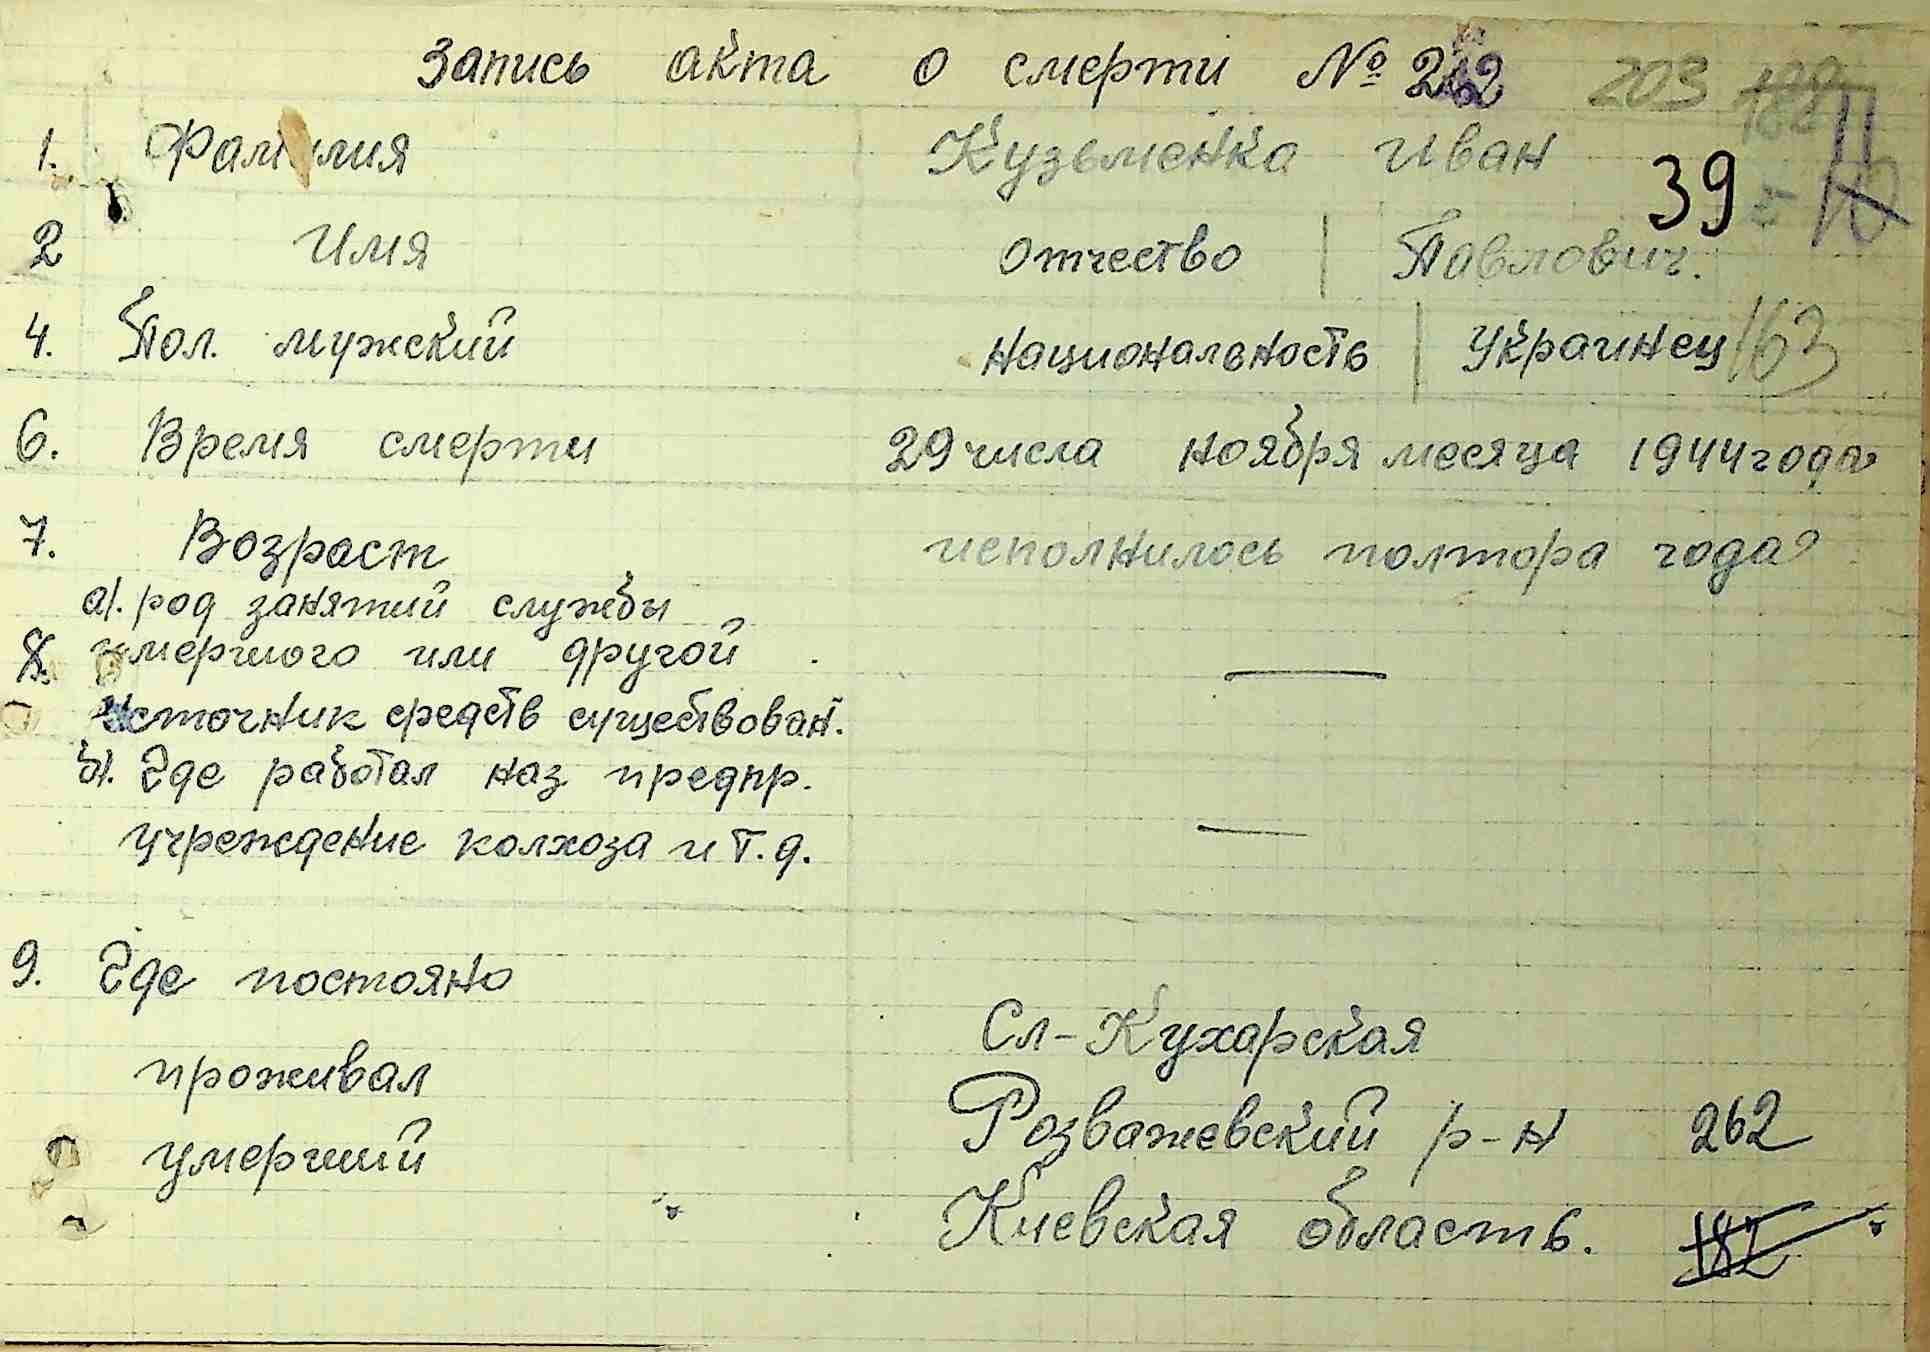 Запись акта о смерти № 2 203
1. Фамилия Кузьменко Иван 39
2 Имя Отчество | Павлович.
4. Пол. мужский Национальность | Украинец 163
6. Время смерти 29 числа ноября месяца 1944 года
7. Возраст исполнилось полтора года
а). род занятий службы
8. умершого или другой —
источник средств существован.
б). Где работал наз предпр.
учреждение колхоза и т.д. —
9. Где постояно
Сл-Кухарская
проживал
Розважевский р-н 262
умерший
Киевская область. 182